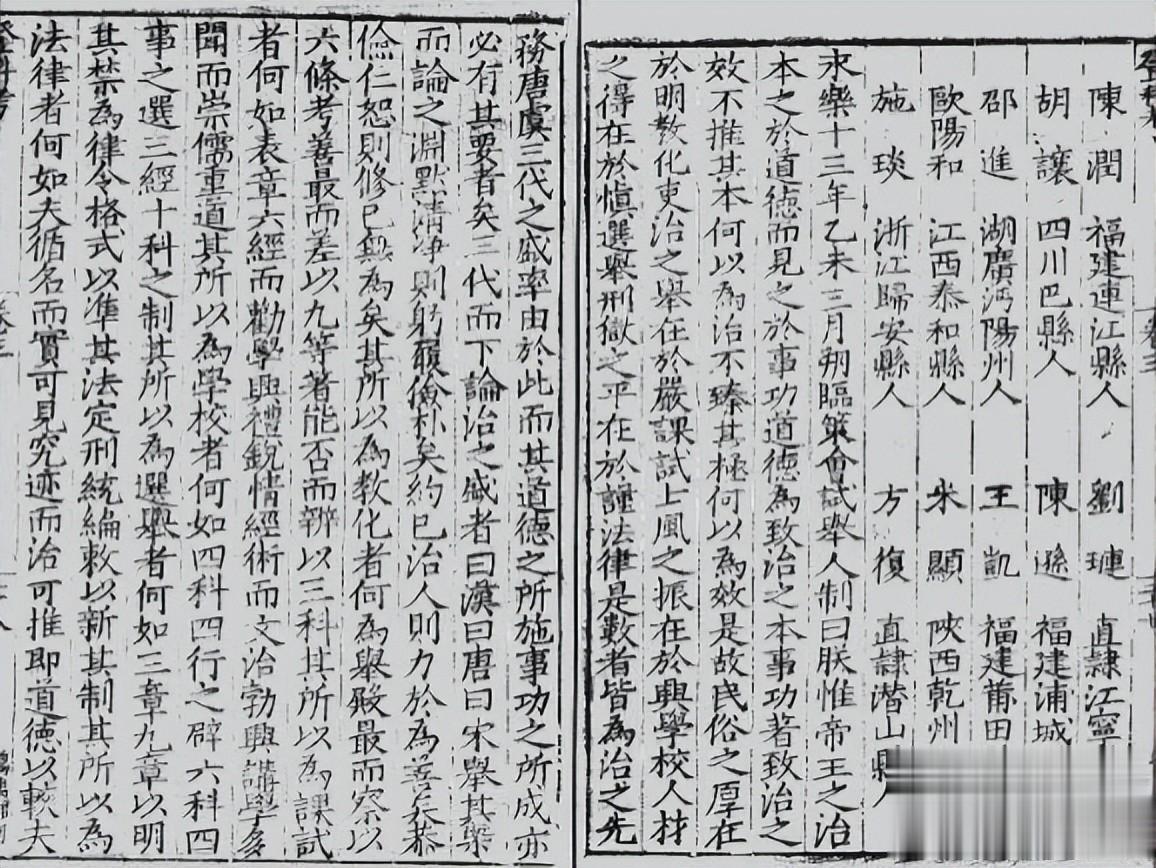 陳潤 福建連江縣人 劉璉 直隸江寧
胡讓 四川巴縣人 陳遜 福建浦城
邵進 湖廣沔陽州人 王凱 福建莆田
歐陽和 江西泰和縣人 米顯 陝西乾州
施琰 浙江歸安縣人 方復 直隸潛山縣人
永樂十三年乙未三月朔臨策會試舉人制曰朕惟帝王之治
本之於道德而見之於事功道德為致治之本事功著致治之
效不推其本何以為治不臻其極何以為效是故民俗之厚在
於明教化吏治之舉在於嚴課試士風之振在於興學校人材
之得在於慎選舉刑獄之平在於謹法律是數者皆為治之先
務唐虞三代之盛率由於此而其道德之所施事功之所成亦
必有其要者矣三代而下論治之盛者曰漢曰唐曰宋舉其槩
而論之淵默清凈則躬履儉朴矣約己治人則力於為善矣恭
儉仁恕則修己無為矣其所以為教化者何為舉殿最而察以
六條考善最而差以九等著能否而辨以三科其所以為課試
者何如表章六經而勸學興禮銳情經術而文治勃興講學多
聞而崇儒重道其所以為學校者何如四科四行之辟六科四
事之選三經十科之制其所以為選舉者何如三章九章以明
其禁為律令格式以準其法定刑統編敕以新其制其所以為
法律者何如夫循名而實可見究迹而治可推即道德以較夫